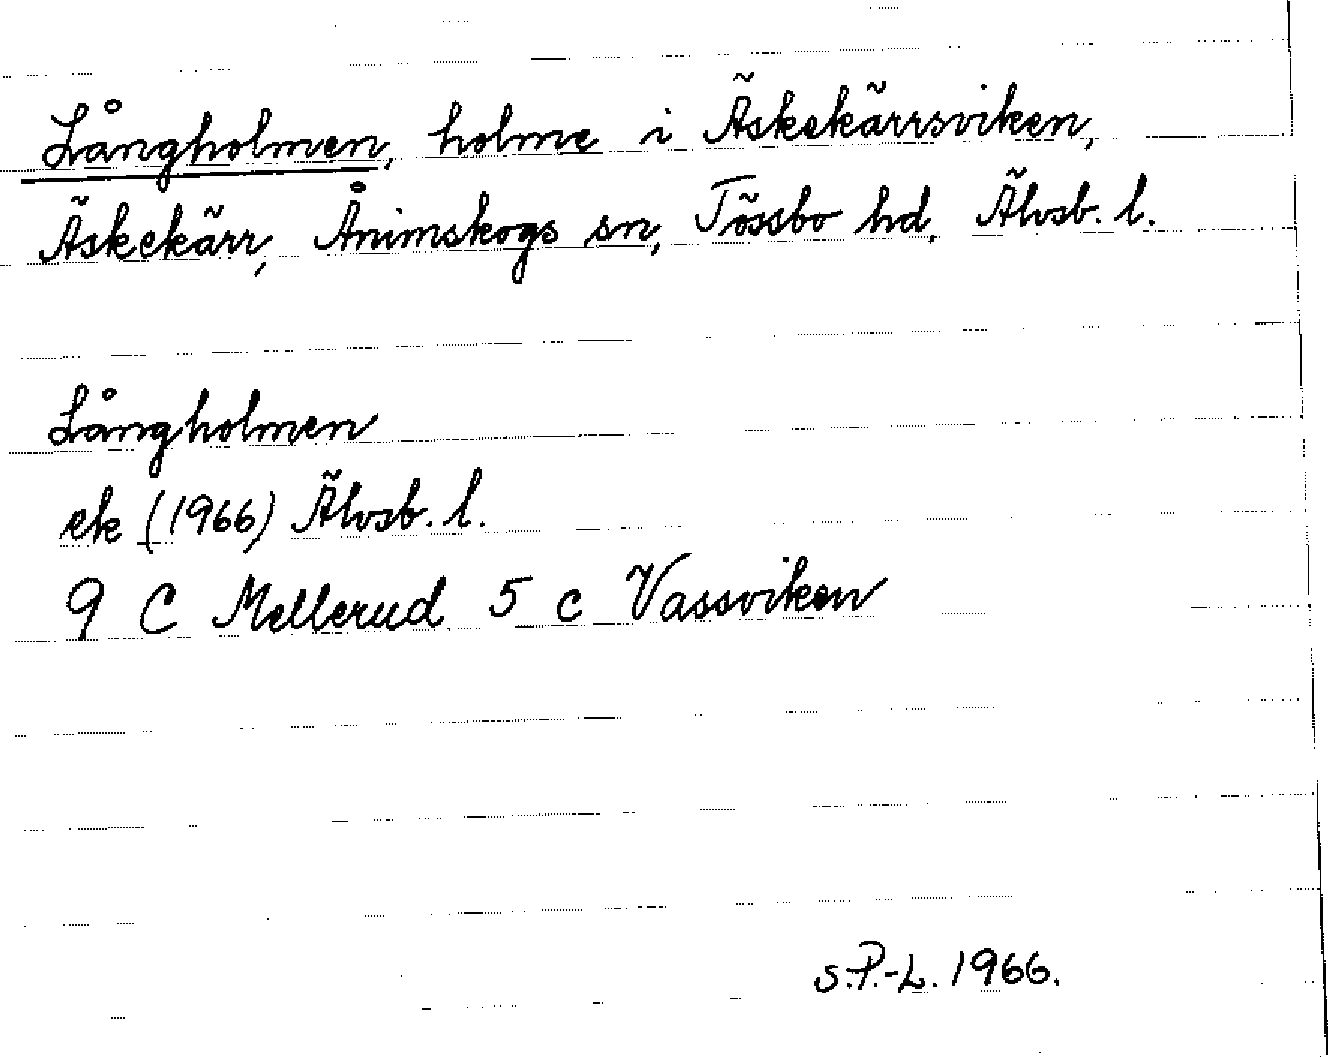 Långholmen, holme i Äskekärrsviken,
Äskekärr, Ånimskogs sn, Tössbo hd, Älvsb. l.
Långholmen
ek (1966) Älvsb. l.
9 C Mellerud 5 c Vassviken
S.P.-L. 1966.